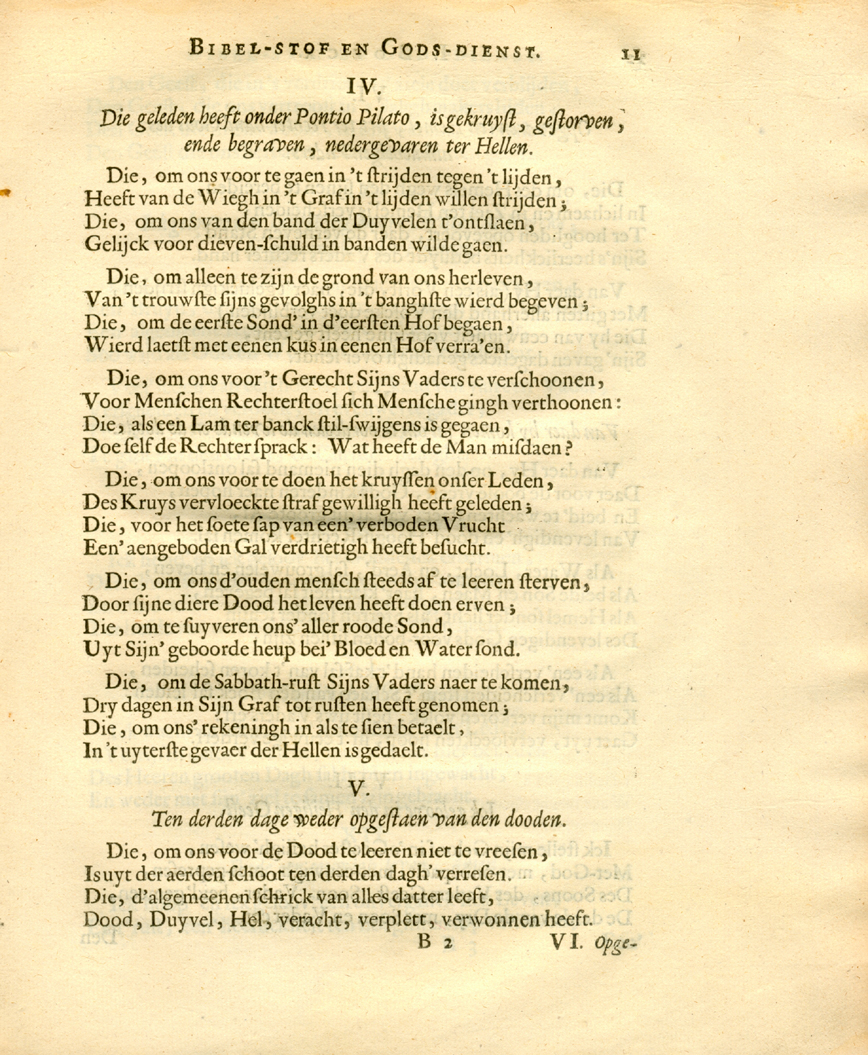 BIBEL-STOF EN GODS-DIENST. 11
IV.
Die geleden heeft onder Pontio Pilato, is gekruyſt, geſtorven,
ende begraven, nedergevaren ter Hellen.
Die, om ons voor te gaen in 't ſtrijden tegen 't lijden,
Heeft van de Wiegh in 't Graf in 't lijden willen ſtrijden;
Die, om ons van den band der Duyvelen t'ontſlaen,
Gelijck voor dieven-ſchuld in banden wilde gaen.
Die, om alleen te zijn de grond van ons herleven,
Van 't trouwſte ſijns gevolghs in 't banghſte wierd begeven;
Die, om de eerſte Sond' in d'eerſten Hof begaen,
Wierd laetſt met eenen kus in eenen Hof verra'en.
Die, om ons voor 't Gerecht Sijns Vaders te verſchoonen,
Voor Menſchen Rechterſtoel ſich Menſche gingh verthoonen:
Die, als een Lam ter banck ſtil-ſwijgens is gegaen,
Doe ſelf de Rechter ſprack: Wat heeft de Man miſdaen?
Die, om ons voor te doen het kruyſſen onſer Leden,
Des Kruys vervloeckte ſtraf gewilligh heeft geleden;
Die, voor het ſoete ſap van een' verboden Vrucht
Een' aengeboden Gal verdrietigh heeft beſucht.
Die, om ons d'ouden menſch ſteeds af te leeren ſterven,
Door ſijne diere Dood het leven heeft doen erven;
Die, om te ſuyveren ons' aller roode Sond,
Uyt Sijn' geboorde heup bei' Bloed en Water ſond.
Die, om de Sabbath-ruſt Sijns Vaders naer te komen,
Dry dagen in Sijn Graf tot ruſten heeft genomen;
Die, om ons' rekeningh in als te ſien betaelt,
In 't uyterſte gevaer der Hellen is gedaelt.
V.
Ten derden dage weder opgeſtaen van den dooden.
Die, om ons voor de Dood te leeren niet te vreeſen,
Is uyt der aerden ſchoot ten derden dagh' verreſen.
Die, d'algemeenen ſchrick van alles datter leeft,
Dood, Duyvel, Hel, veracht, verplett, verwonnen heeft.
B 2 VI. Opge-